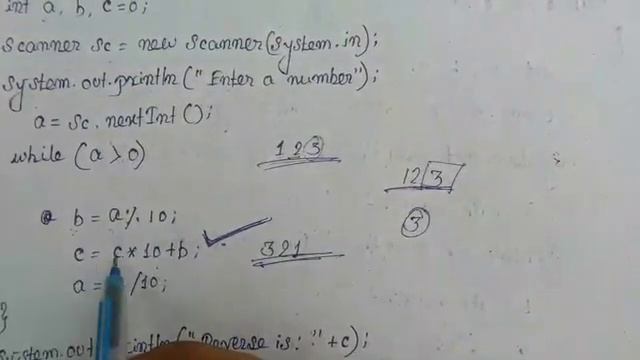 int a, b, c=0;
Scanner sc = new Scanner(System.in);
System.out.println("Enter a number");
a = sc.nextInt();
while (a>0)
123
123
b = a%10;
3
c = c*10+b;
321
a = /10;
}
System.out.println("Reverse is:"+c);